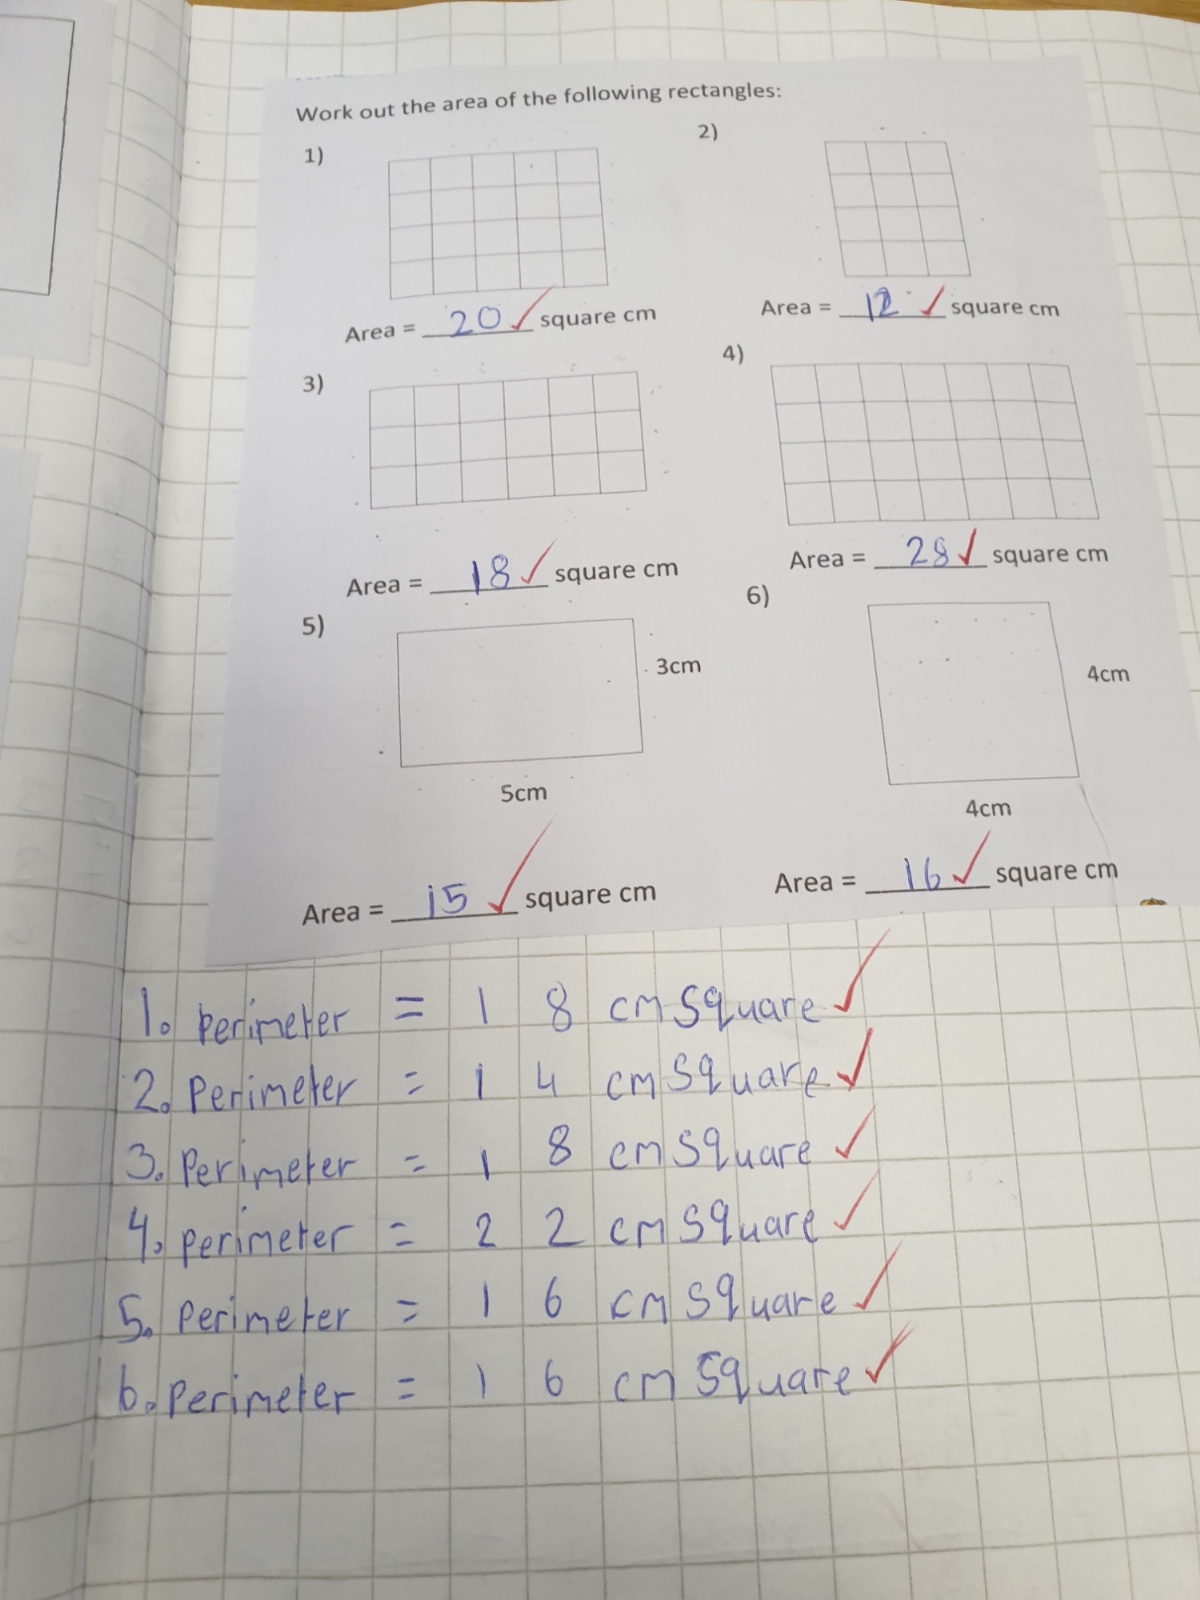 Work out the area of the following rectangles:
1)
2)
Area = 20 square cm
Area = 12 square cm
3)
4)
Area = 18 square cm
Area = 28 square cm
5)
6)
3cm
4cm
5cm
4cm
Area = 15 square cm
Area = 16 square cm
1. perimeter = 18 cm square
2. Perimeter = 14 cm square
3. Perimeter = 18 cm square
4. perimeter = 22 cm square
5. perimeter = 16 cm square
6. perimeter = 16 cm square